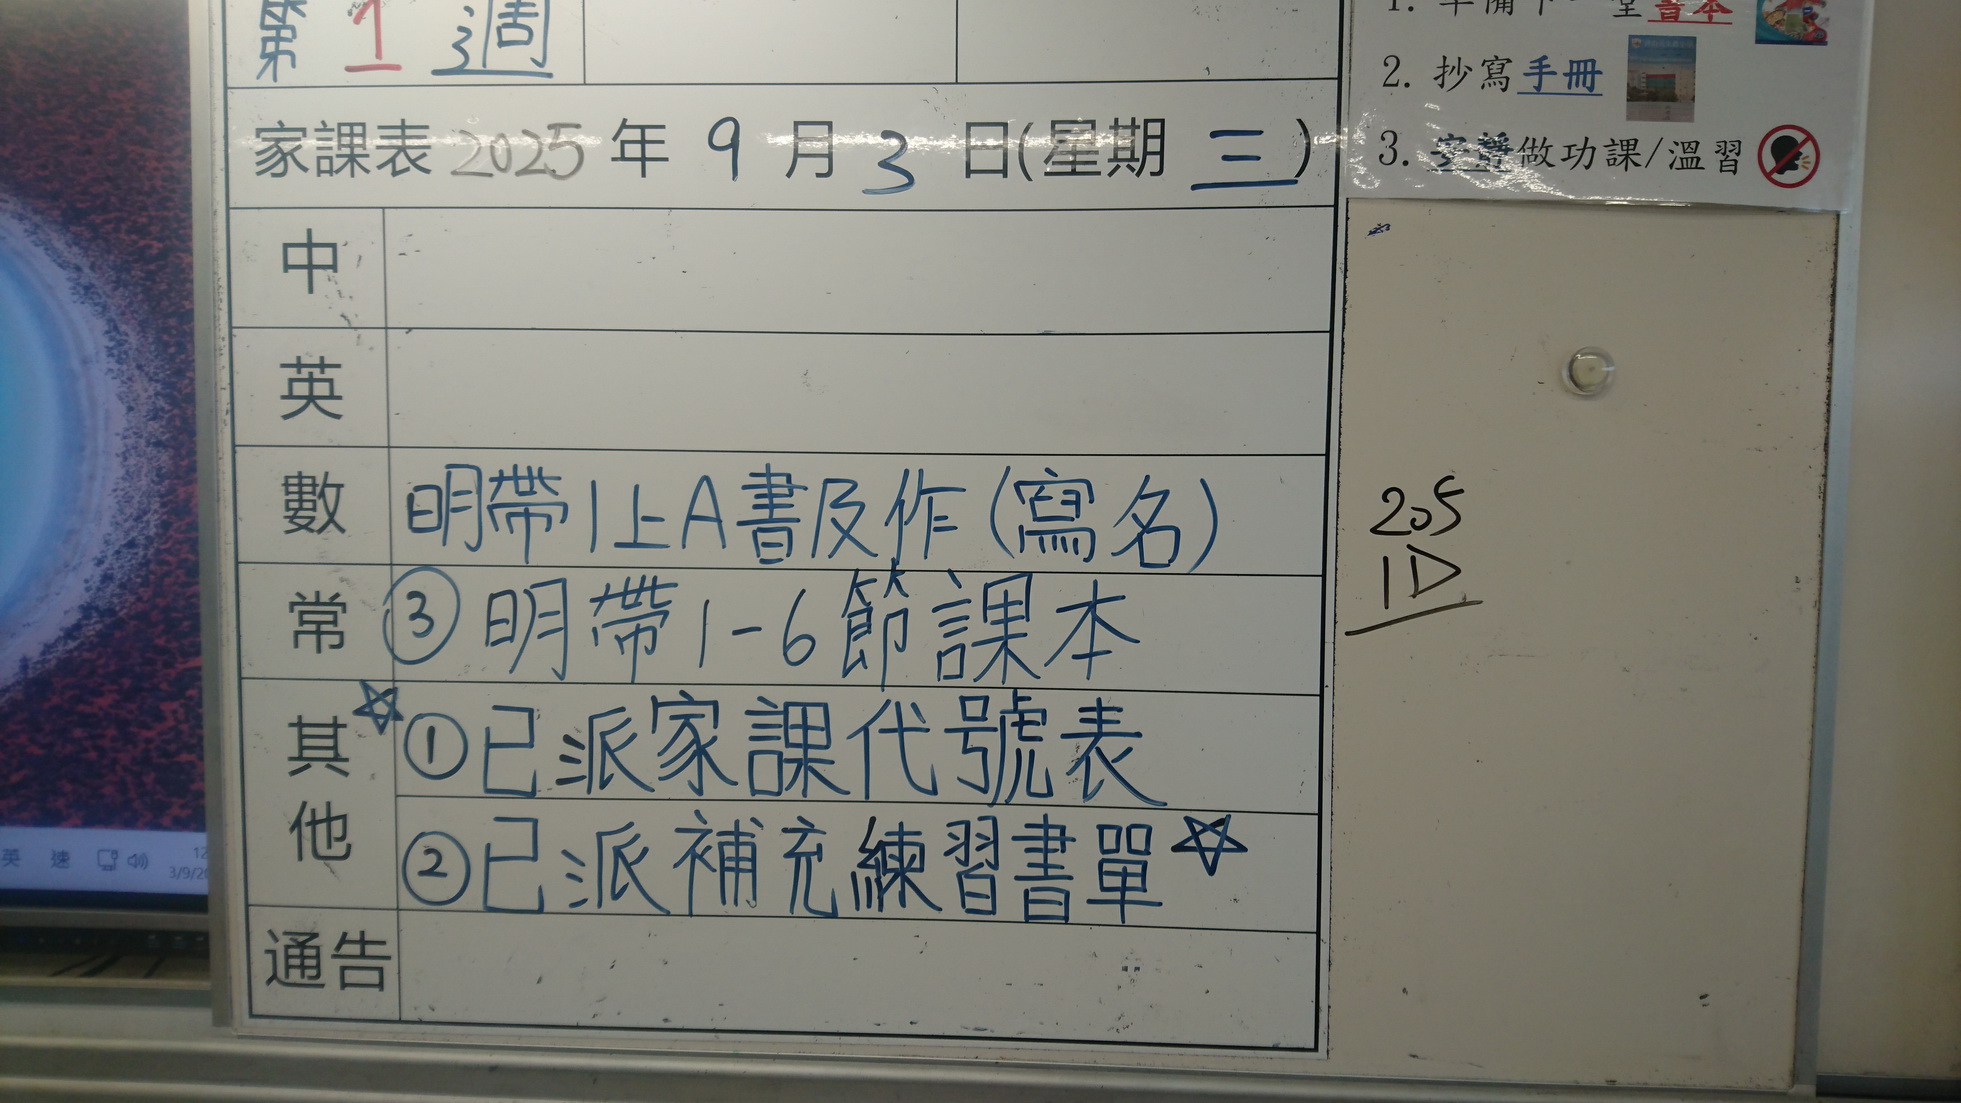 第1週
家課表 2025 年 9 月 3 日(星期 三)
中
英
數 明帶1上A書及作(寫名)
常 ③ 明帶1-6節課本
其他 ☆ ①已派家課代號表
②已派補充練習書單☆
通告
1. 準備下一堂書本
2. 抄寫手冊
3. 安靜做功課/溫習
205
1D
英 速
12
3/9/20